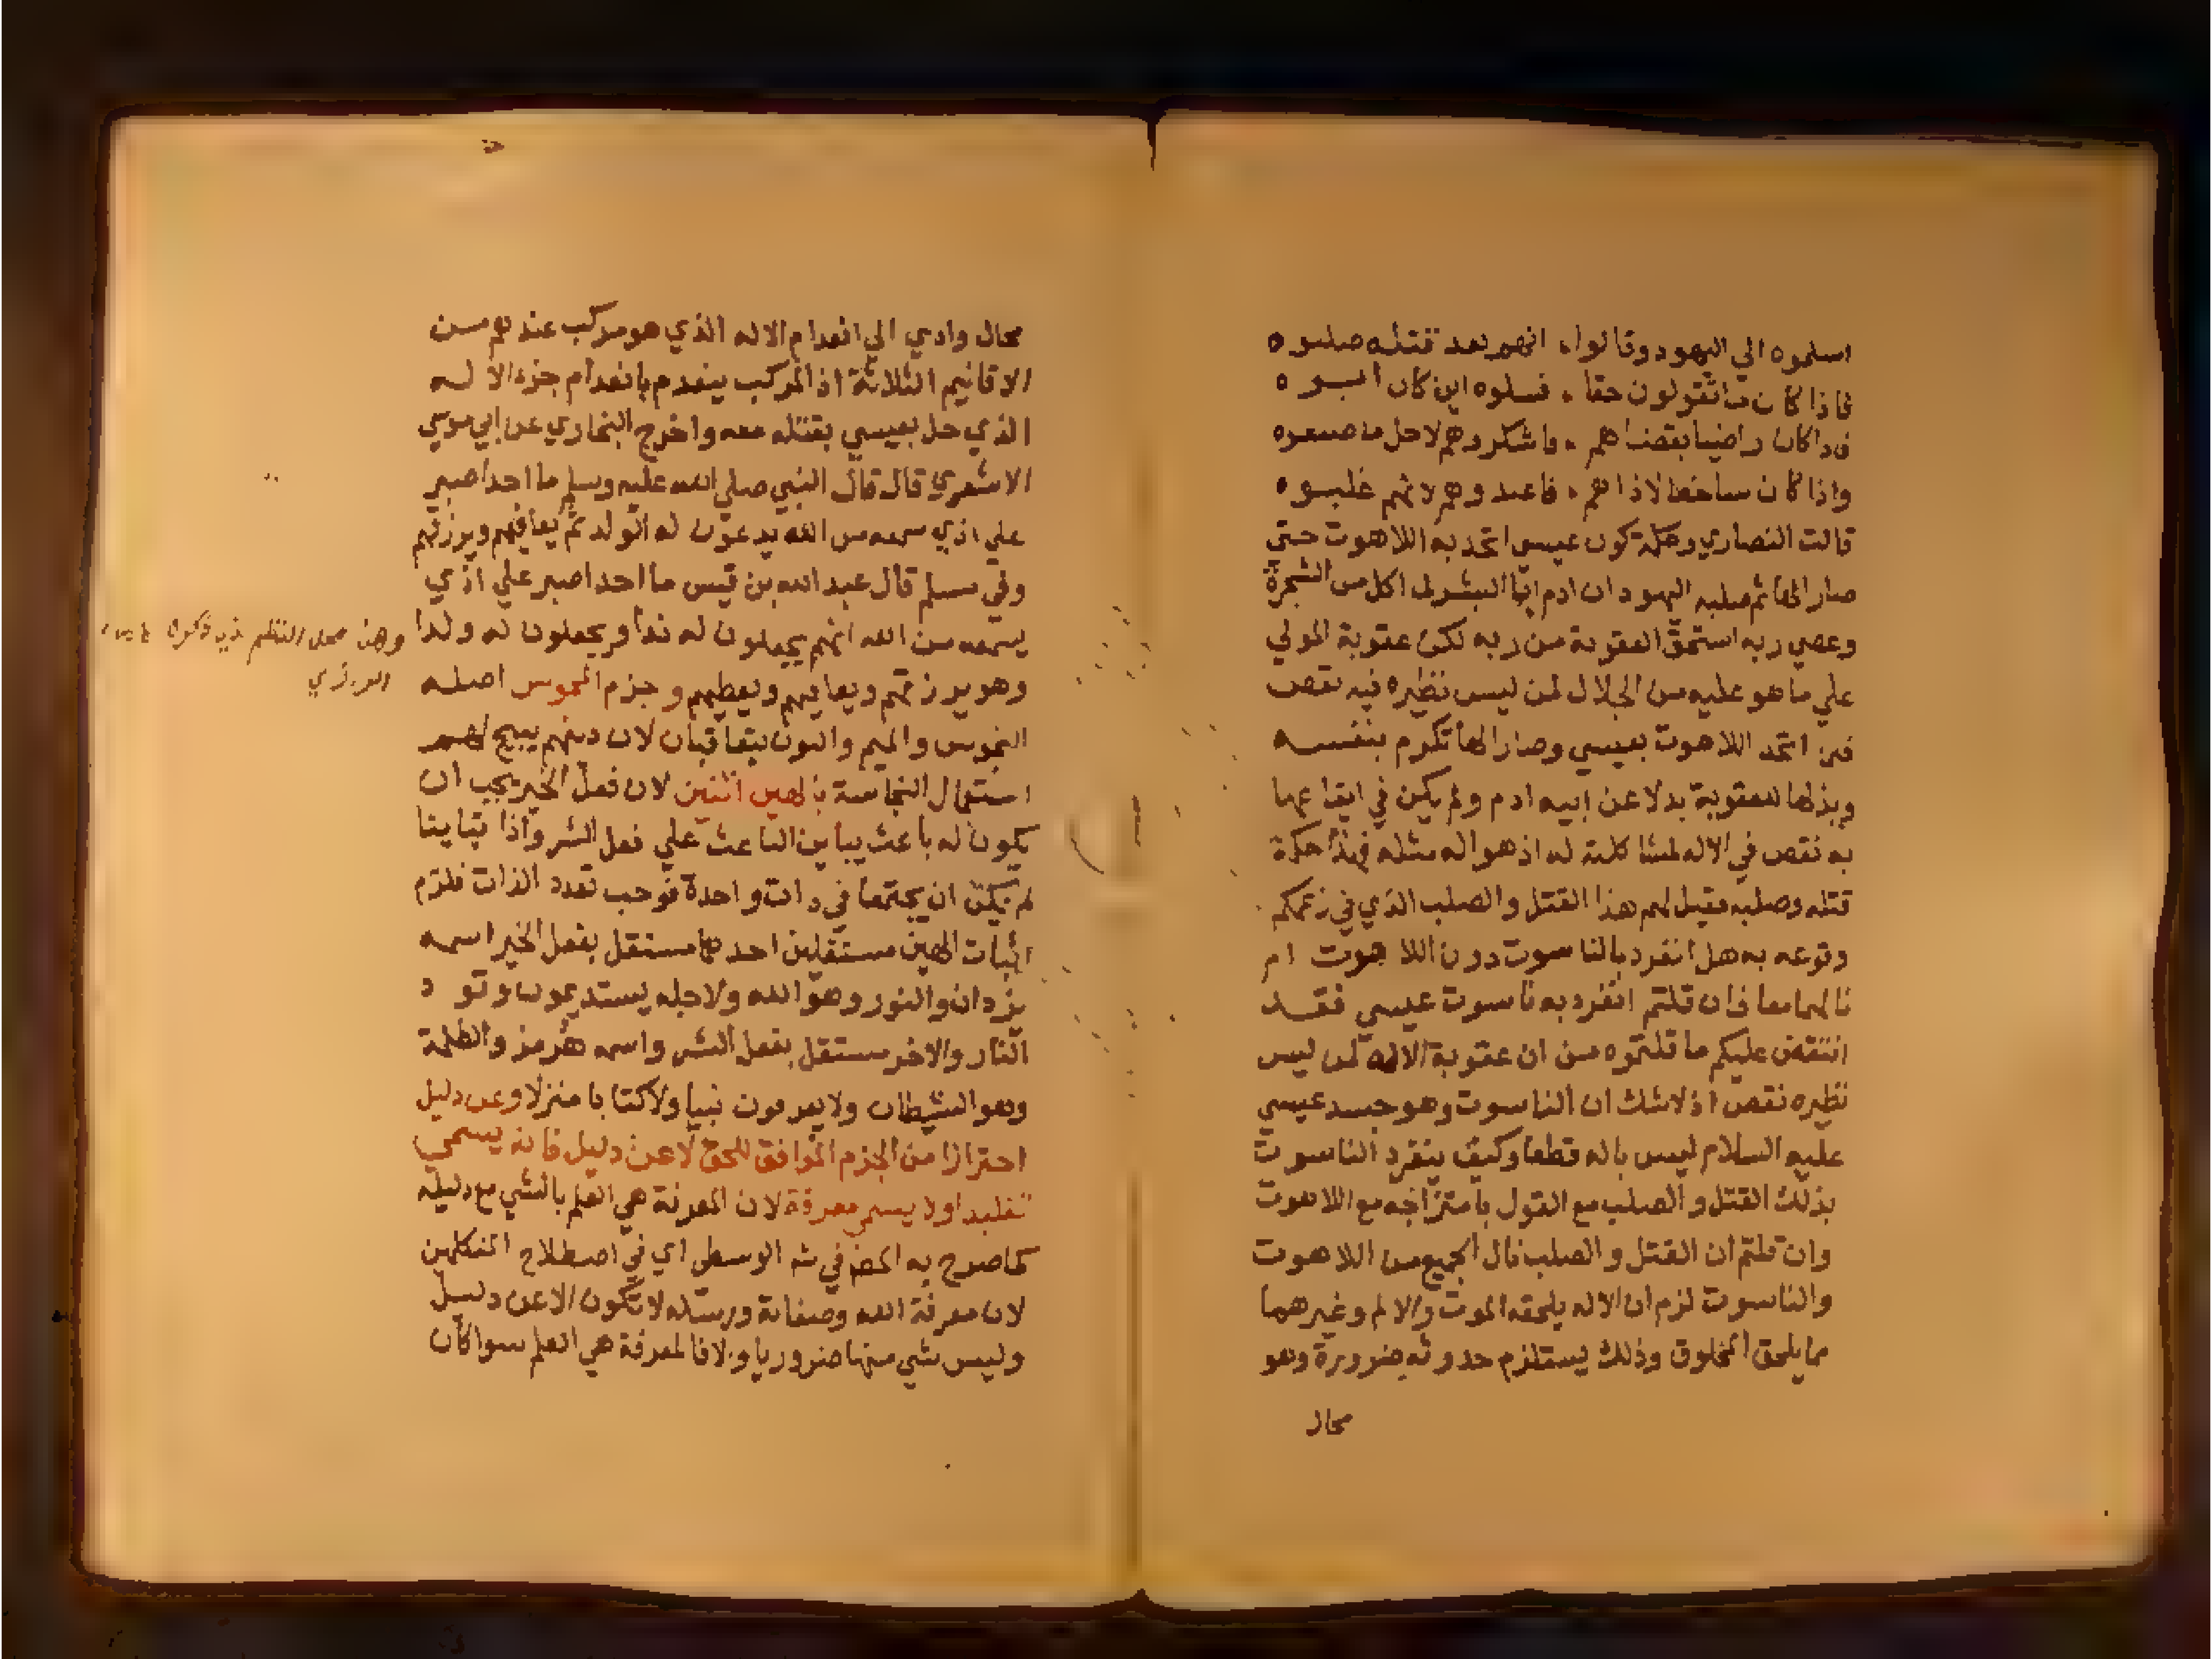 اسلموه الي اليهود وقالوا، انهم بعد قتله صلبوه
فاذا كان ما تقولون حقا، فسلوه اين كان ابوه
فاذا كان راضيا بقضاهم، فاشكروهم لاجل ما صنعوه
واذا كان ساخطا لاذاهم، فاعبدوهم لانهم غلبوه
قالت النصاري وحكمة كون عيسي اتحد به اللاهوت حتي
صار الها ثم صلبه اليهود ان ادم ابا البشر لما اكل من الشجرة
وعصي ربه استحق العقوبة من ربه لكن عقوبة المولي
علي ما هو عليه من الجلال لمن ليس نظيره فيه نقص
فمن اتحد اللاهوت بعيسي وصار الها تكرم بنفسه
وبذلها للعقوبة بدلا عن ابيه ادم ولم يكن في ايقاعها
به نقص في الاله لمشاكلته له اذ هو اله مثله فهذا حكمة
قتله وصلبه فقيل لهم هذا القتل والصلب الذي في زعمكم
وقوعه به هل انفرد بالناسوت دون اللاهوت ام
نالهما معا فان قلتم انفرد به ناسوت عيسي فقد
انتقض عليكم ما قلتموه من ان عقوبة الاله لمن ليس
نظيره نقص اذ لا شك ان الناسوت وهو جسد عيسي
عليه السلام ليس باله قطعا وكيف ينفرد الناسوت
بذلك القتل والصلب مع القول بامتزاجه مع اللاهوت
وان قلتم ان القتل والصلب نال الجميع من اللاهوت
والناسوت لزم ان الاله يلحقه الموت والالم وغيرهما
مما يلحق المخلوق وذلك يستلزم حدوثه ضرورة وهو
محال
محال وادي الي انعدام الاله الذي هو مركب عندهم من
الاقانيم الثلاثة اذ المركب ينعدم بانعدام جزء الاله
الذي حل بعيسي بقتله معه واخرج البخاري عن ابي موسي
الاشعري قال قال النبي صلي الله عليه وسلم ما احد اصبر
علي اذي سمعه من الله يدعون له الولد ثم يعافيهم ويرزقهم
وفي مسلم قال عبد الله بن قيس ما احد اصبر علي اذي
يسمعه من الله انهم يجعلون له ندا ويجعلون له ولدا
وهو يرزقهم ويعافيهم ويعطيهم وجزم المجوس اصله
النجوس والميم والنون يتعاقبان لان دينهم يبيح لهم
استعمال النجاسة بالهين اثنين لان فعل الخير يجب ان
يكون له باعث يباين الباعث علي فعل الشر واذا تباينا
لم يمكن ان يجتمعا في ذات واحدة فوجب تعدد الذات فلزم
اثبات الهين مستقلين احدهما مستقل بفعل الخير اسمه
يزدان والنور وهو الله ولاجله يستديمون وقود
النار والاخر مستقل بفعل الشر واسمه هرمز والظلمة
وهو الشيطان ولا يعرفون نبيا ولا كتابا منزلا وعن دليل
احترازا من الجزم الموافق للحق لا عن دليل فانه يسمي
تقليدا ولا يسمي معرفة لان المعرفة هي العلم بالشي مع دليله
كما صرح به المص في شه الوسطي اي في اصطلاح المتكلمين
لان معرفة الله وصفاته ورسله لا تكون الا عن دليل
وليس شي منها ضروريا والا فالمعرفة هي العلم سوا كان
وهذا محل النظم ذكره
الرازي